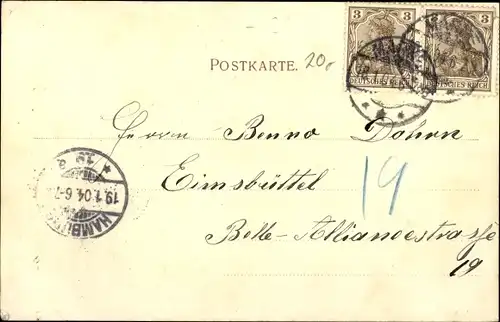 3 3
DEUTSCHES REICH DEUTSCHES REICH
POSTKARTE. 20,
Herrn Benno Dohrn
Eimsbüttel
19
Belle-Alliancestrasse
19
HAMBURG
19.1.04.6-7